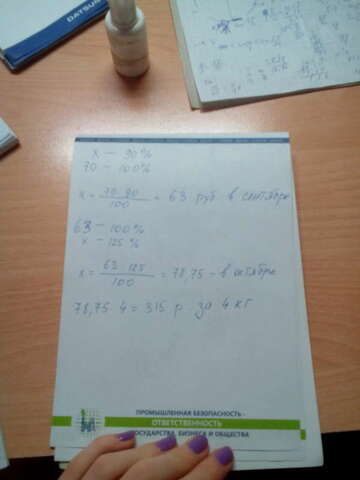 DATSUN
x — 90%
70 — 100%
x = 70 90 / 100 = 63 руб в сентябре
63 — 100%
x — 125%
x = 63 125 / 100 = 78,75 - в октябре
78,75 4 = 315 р за 4 кг
ПРОМЫШЛЕННАЯ БЕЗОПАСНОСТЬ -
ОТВЕТСТВЕННОСТЬ
ГОСУДАРСТВА, БИЗНЕСА И ОБЩЕСТВА